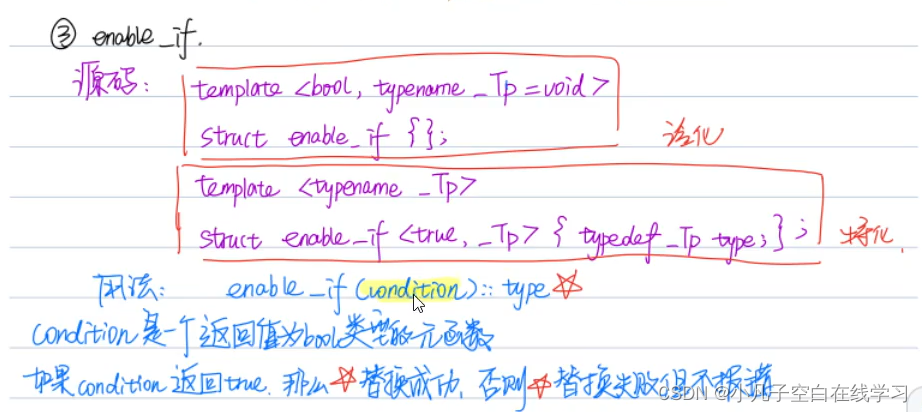 ③ enable_if.
源码: template <bool, typename _Tp = void>
struct enable_if {}; 泛化
template <typename _Tp>
struct enable_if <true, _Tp> { typedef _Tp type; }; 特化.
用法: enable_if (condition)::type ☆
condition是一个返回值为bool类型的元函数
如果condition返回true, 那么☆替换成功, 否则☆替换失败但不报错
CSDN @小儿子空白在线学习